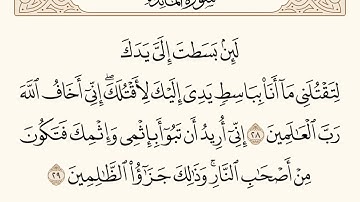 سُورَةُ المَائِدَةِ
لَئِنۢ بَسَطتَ إِلَىَّ يَدَكَ
لِتَقْتُلَنِى مَآ أَنَا۠ بِبَاسِطٍ يَدِىَ إِلَيْكَ لِأَقْتُلَكَ ۖ إِنِّىٓ أَخَافُ ٱللَّهَ
رَبَّ ٱلْعَٰلَمِينَ ٢٨ إِنِّىٓ أُرِيدُ أَن تَبُوٓأَ بِإِثْمِى وَإِثْمِكَ فَتَكُونَ
مِنْ أَصْحَٰبِ ٱلنَّارِ ۚ وَذَٰلِكَ جَزَٰٓؤُا۟ ٱلظَّٰلِمِينَ ٢٩